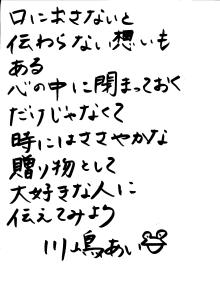 口にださないと
伝わらない想いも
ある
心の中に閉まっておく
だけじゃなくて
時にはささやかな
贈り物として
大好きな人に
伝えてみよう
川嶋あい